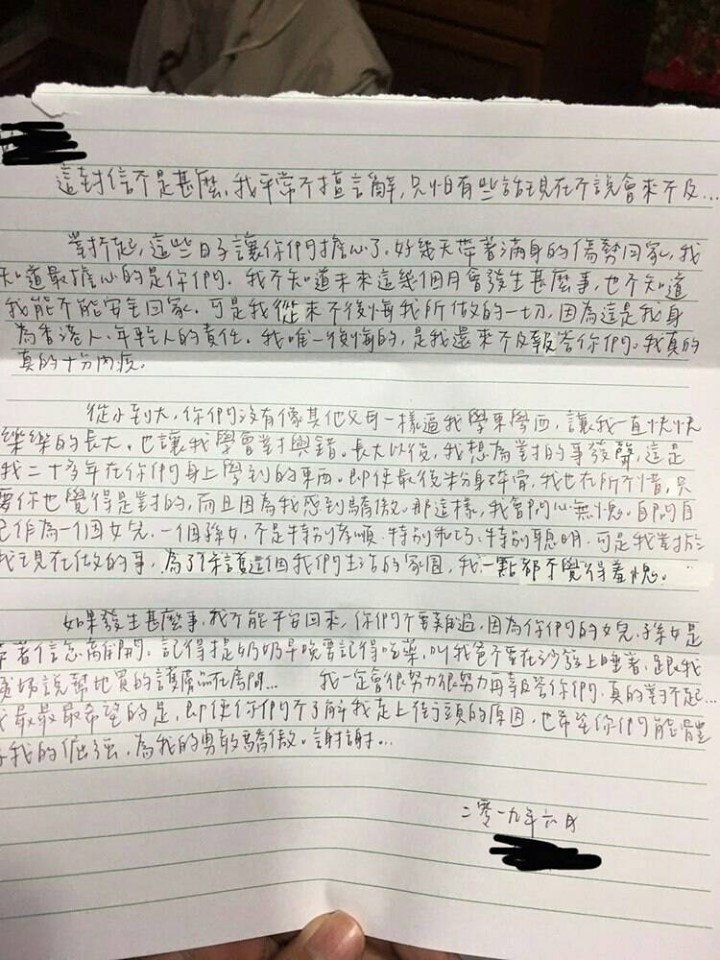 這封信不是甚麼,我平常不擅言辭,只怕有些話現在不說會來不及...
對不起,這些日子讓你們擔心了,好幾天帶著滿身的傷勢回家,我
知道最擔心的是你們。我不知道未來這幾個月會發生甚麼事,也不知道
我能不能安全回家.可是我從來不後悔我所做的一切,因為這是我身
為香港人、年輕人的責任。我唯一後悔的,是我還來不及報答你們。我真的
真的十分內疚。
從小到大,你們沒有像其他父母一樣逼我學東學西,讓我一直快快
樂樂的長大。也讓我學會對與錯。長大以後,我想為對的事發聲,這是
我二十多年在你們身上學到的東西。即使最後粉身碎骨,我也在所不惜,只
要你也覺得是對的,而且因為我感到驕傲。那這樣,我會問心無愧。自問自
己作為一個女兒、一個孫女,不是特別孝順、特別乖巧、特別聰明,可是我對於
我現在做的事,為了保護這個我們生活的家園,我一點都不覺得羞愧。
如果發生甚麼事,我不能平安回來,你們不要難過,因為你們的女兒、孫女是
帶著信念離開,記得提奶奶早晚要記得吃藥,叫我爸不要在沙發上睡著,跟我
說幫她買的護膚品在房間... 我一定會很努力很努力再報答你們,真的對不起...
我最最最希望的是,即使你們不了解我走上街頭的原因,也希望你們能體
我的倔強,為我的勇敢驕傲。謝謝...
二零一九年六月